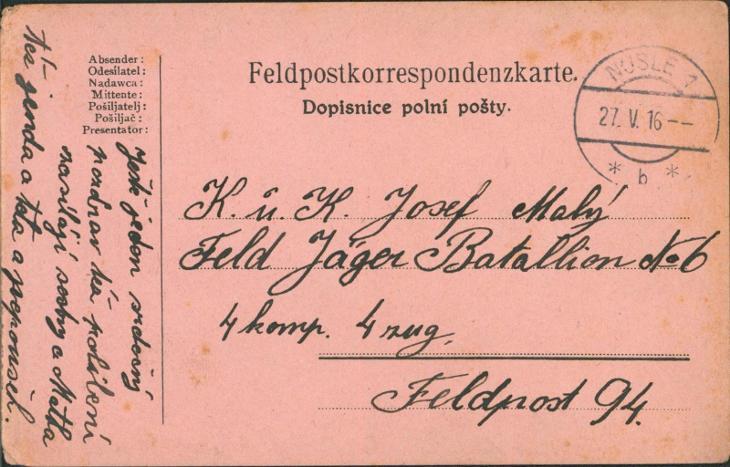 Absender:
Odesílatel:
Nadawca:
Mittente:
Pošiljatelj:
Pošiljač:
Presentator:
Feldpostkorrespondenzkarte.
Dopisnice polní pošty.
NUSLE 1
27. V. 16 --
* b *
K. u. K. Josef Malý
Feld Jäger Batallion No 6
4 komp. 4 zug.
Feldpost 94.
Ještě jeden srdečný
pozdrav též políbení
zasílají sestry a Matka
též jenda a teta a